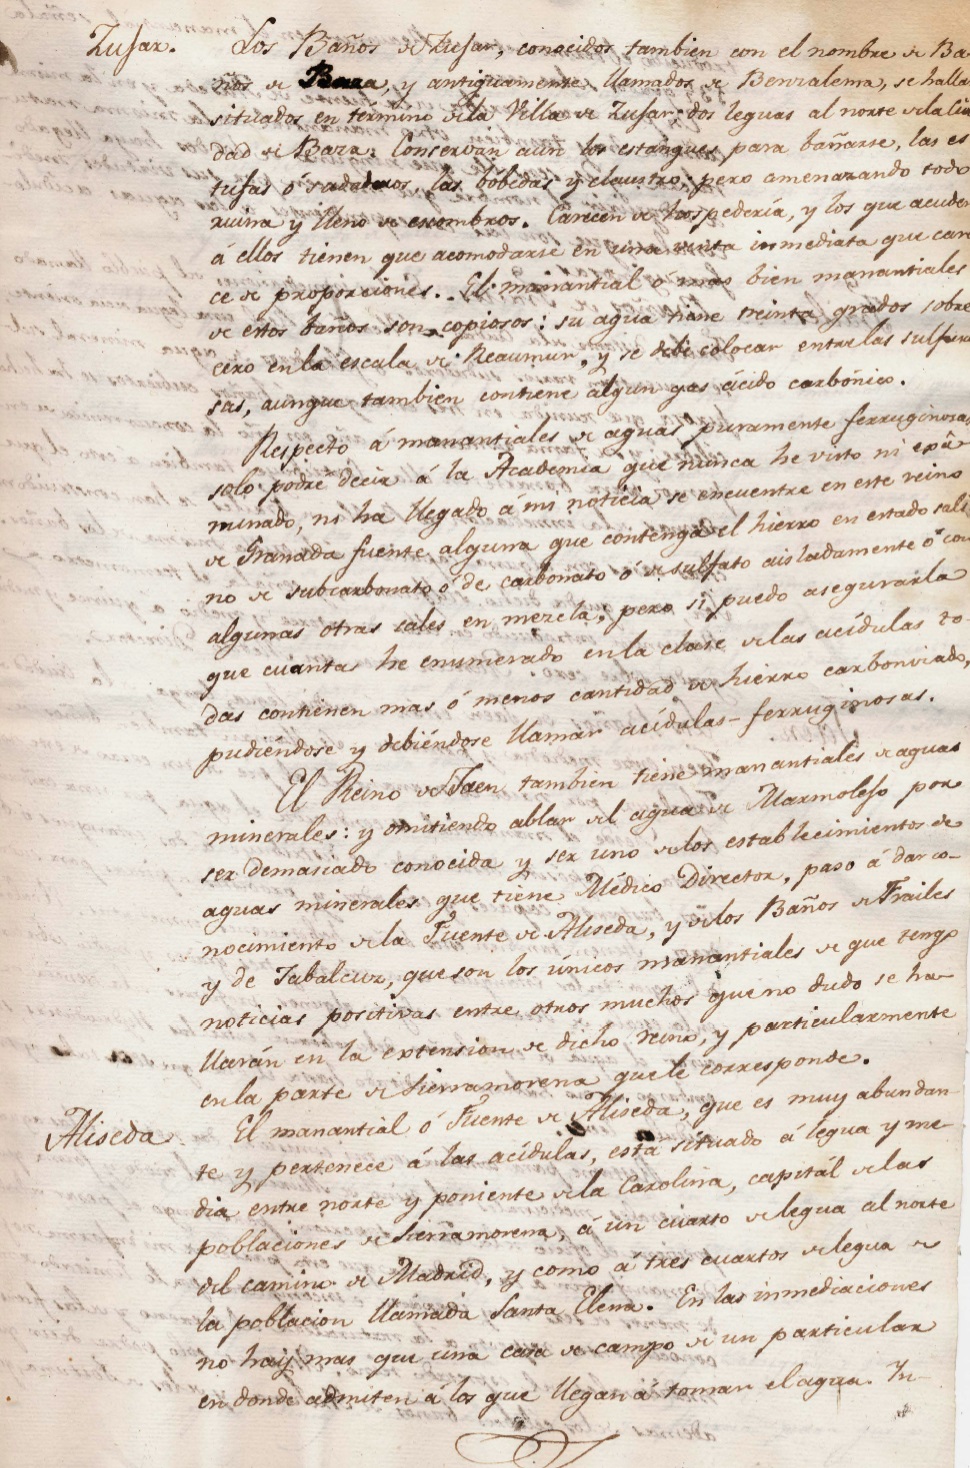 Zujar. Los Baños de Zujar, conocidos tambien con el nombre de Ba-
ños de Baza, y antiguamente llamados de Benzalema, se hallan
situados en término de la Villa de Zujar: dos leguas al norte de la Ciu
dad de Baza. Conservan aun los estanques para bañarse, las es
tufas ó sudaderos, las bóbedas y claustro; pero amenazando todo
ruina y lleno de escombros. Carecen de hospedería, y los que acuden
á ellos tienen que acomodarse en una venta inmediata que care
ce de proporciones. El manantial ó mas bien manantiales
de estos baños son copiosos: su agua tiene treinta grados sobre
cero en la escala de Reaumur, y se debe colocar entre las sulfuro
sas, aunque tambien contiene algun gas ácido carbónico.
Respecto á manantiales de aguas puramente ferruginosas
solo podré decir á la Academia que nunca he visto ni exâ
minado, ni ha llegado á mi noticia se encuentre en este reino
de Granada fuente alguna que contenga el hierro en estado sali
no de subcarbonato ó de carbonato ó de sulfato aisladamente ó con
algunas otras sales en mezcla; pero si puedo asegurarla
que cuantas he enumerado en la clase de las acídulas to-
das contienen mas ó menos cantidad de hierro carbonizado,
pudiéndose y debiéndose llamar acídulas-ferruginosas.
El Reino de Jaen tambien tiene manantiales de aguas
minerales: y omitiendo ablar del agua de Marmolejo por
ser demasiado conocida y ser uno de los establecimientos de
aguas minerales que tiene Médico Director, paso á dar co-
nocimiento de la Fuente de Aliseda, y de los Baños de Frailes
y de Jabalcuz, que son los únicos manantiales de que tengo
noticias positivas entre otros muchos que no dudo se ha-
llarán en la extension de dicho reino, y particularmente
en la parte de Sierramorena que le corresponde.
Aliseda El manantial ó Fuente de Aliseda, que es muy abundan
te y pertenece á las acídulas, está situado á legua y me-
dia entre norte y poniente de la Carolina, capitál de las
poblaciones de Sierramorena, á un cuarto de legua al norte
del camino de Madrid, y como á tres cuartos de legua de
la poblacion llamada Santa Elena. En las inmediaciones
no haij mas que una casa de campo de un particular
en donde admiten á los que llegan á tomar el agua. In-